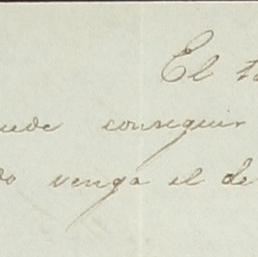 El t
uede conseguir
do venga el de